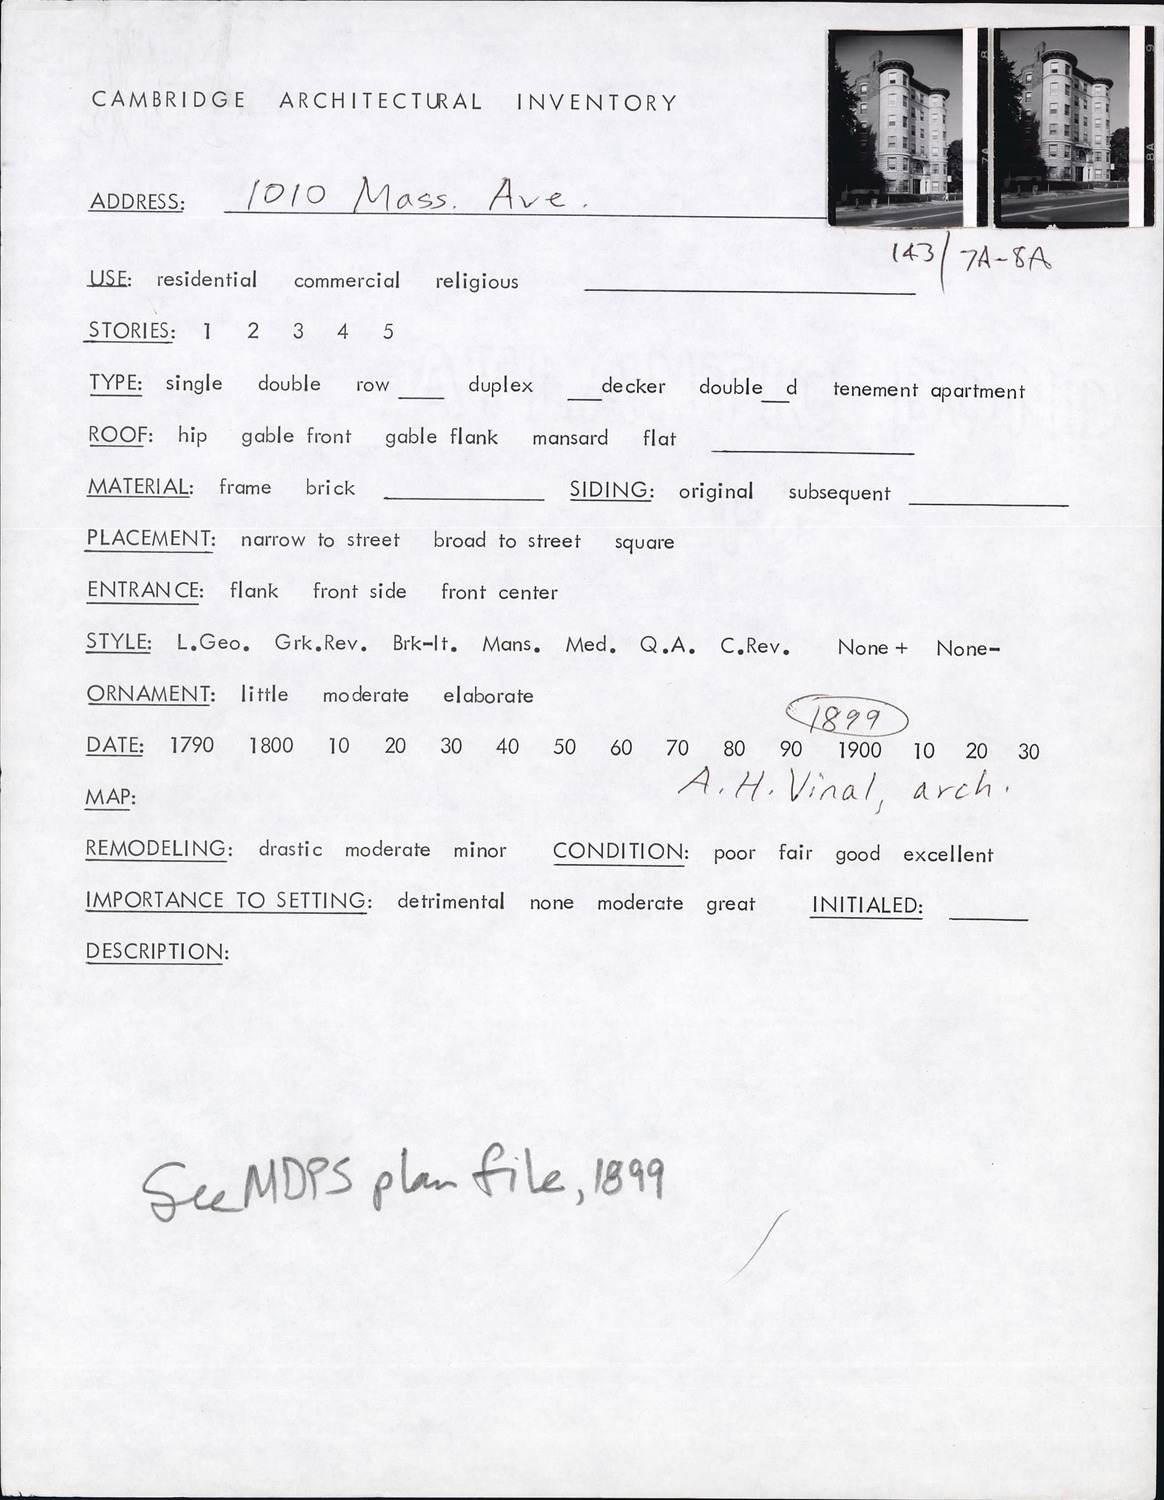 CAMBRIDGE ARCHITECTURAL INVENTORY
ADDRESS: 1010 Mass. Ave.
143/7A-8A
USE: residential commercial religious
STORIES: 1 2 3 4 5
TYPE: single double row ____ duplex ___decker double__d tenement apartment
ROOF: hip gable front gable flank mansard flat
MATERIAL: frame brick ____ SIDING: original subsequent ____
PLACEMENT: narrow to street broad to street square
ENTRANCE: flank front side front center
STYLE: L.Geo. Grk.Rev. Brk-It. Mans. Med. Q.A. C.Rev. None + None-
ORNAMENT: little moderate elaborate
1899
DATE: 1790 1800 10 20 30 40 50 60 70 80 90 1900 10 20 30
A. H. Vinal, arch.
MAP:
REMODELING: drastic moderate minor CONDITION: poor fair good excellent
IMPORTANCE TO SETTING: detrimental none moderate great INITIALED: ____
DESCRIPTION:
See MDPS plan file, 1899